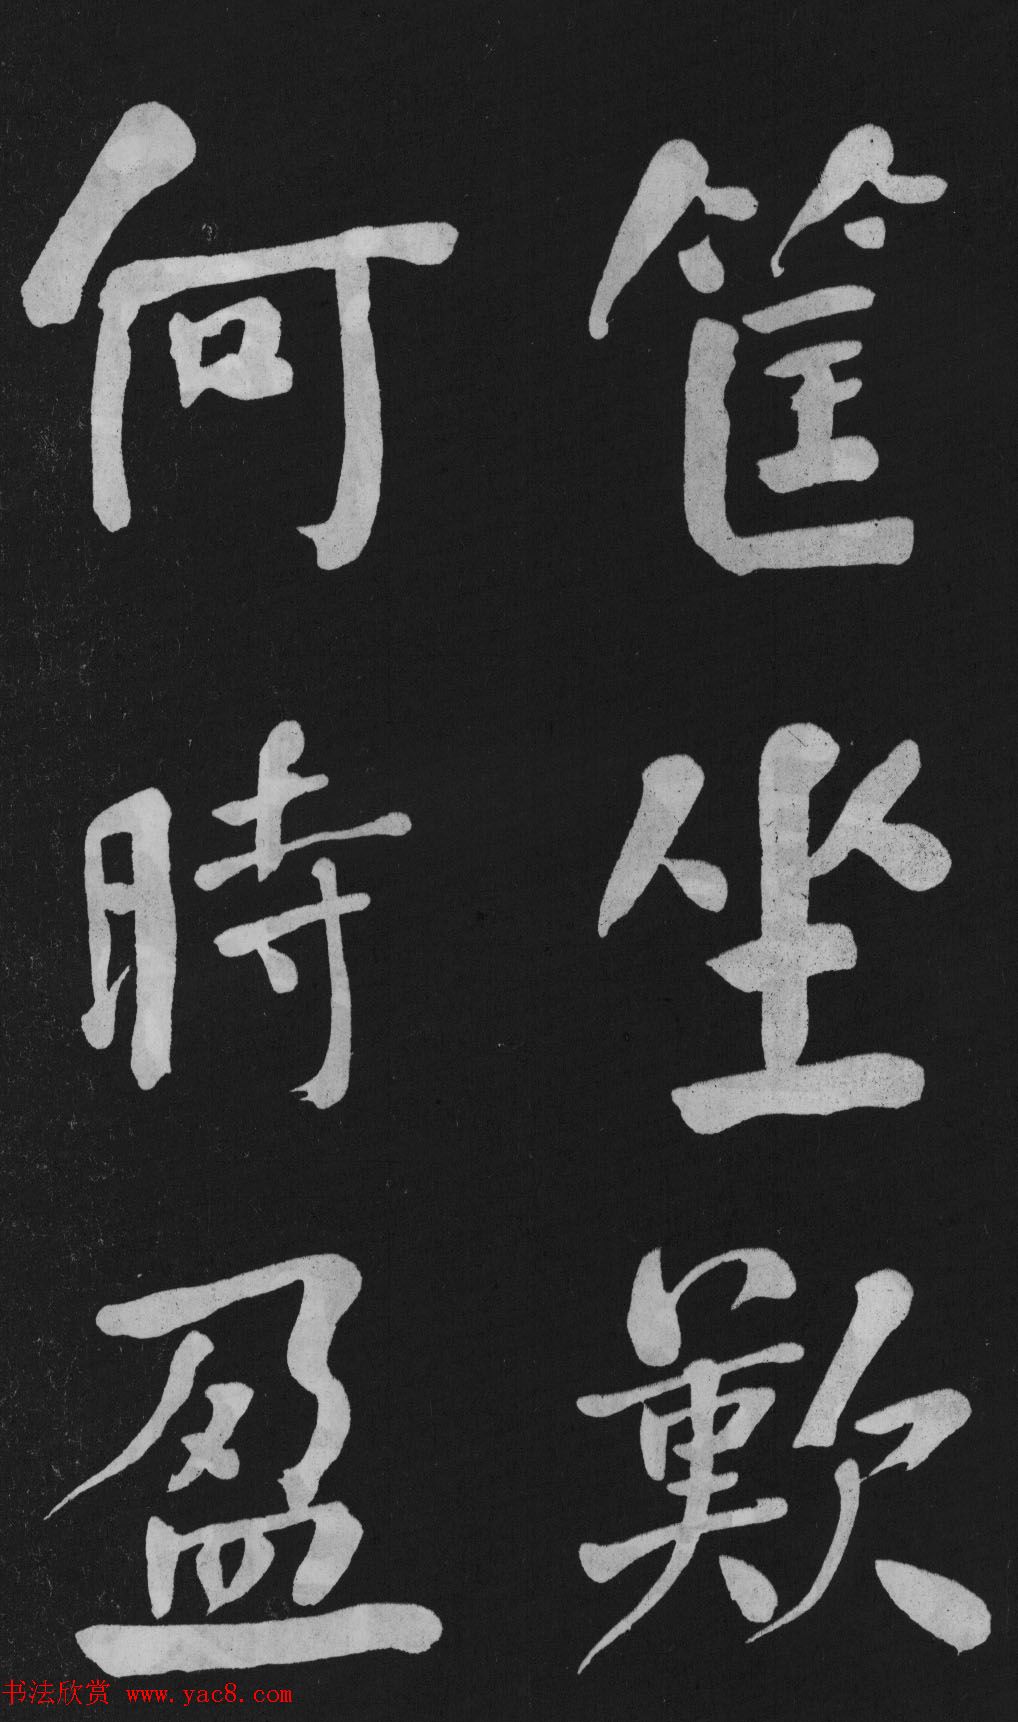 筐坐歎
何時盈
书法欣赏 www.yac8.com